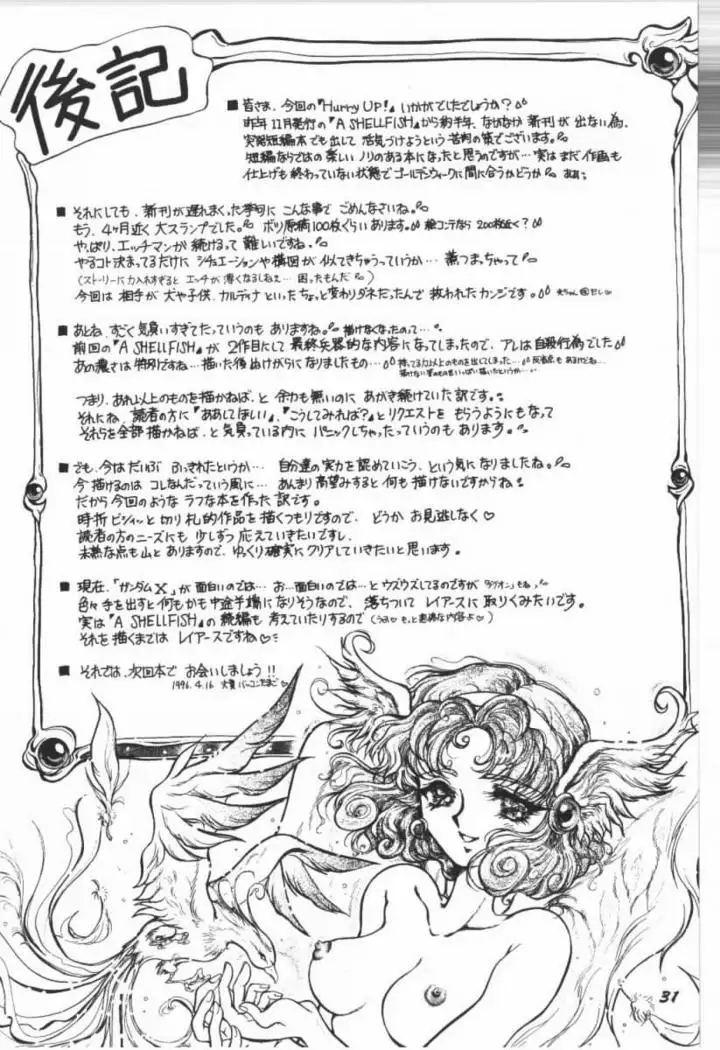 後記
■皆さま、今回の『Hurry UP!』いかがでしたでしょうか?
昨年11月発行の『A SHELLFISH』から約半年、なかなか新刊が出ない為、
実格短編本でも出して活気づけようという苦肉の策でございます。
短編ならではの楽しいノリのある本になったと思うのですが…実はまだ作画も
仕上げも終わっていない状態でゴールデンウィークに間に合うかどうか
■それにしても、新刊が遅れまくった挙句にこんな事でごめんなさいね。
もう、4ヶ月近く大スランプでした。ボツ原稿100枚ぐらいあります。絵コンテなら200枚近く?
やっぱり、エッチマンガ続けるって難しいですね。
やるコト決まってるだけにシチュエーションや構図が似てきちゃうっていうか…煮つまっちゃって
(ストーリーに力入れすぎるとエッチが薄くなるしねぇ…困ったもんだ)
今回は相手が犬や子供、カルディナといったちょっと変わりダネだったんで救われたカンジです。
■あとね、すごく気負いすぎてたっていうのもありますね。描けなくなったのって…
前回の『A SHELLFISH』が2作目にして最終兵器的な内容になってしまったので、アレは自殺行為でした
あの濃さは特別ですね…描いた後ぬけがらになりましたもの…持ってる力以上のものを出してしまった…
つまり、あれ以上のものを描かねば、と余力も無いのにあがき続けていた訳です。
それにね、読者の方に『ああしてほしい』、『こうしてみれば?』とリクエストをもらうようにもなって
それらを全部描かねば、と気負っている内にパニックしちゃったっていうのもあります。
■でも、今はだいぶふっきれたというか…自分達の実力を認めていこう、という気になりましたね。
今描けるのはコレなんだっていう風に…あんまり高望みすると何も描けないですからね
だから今回のようなラフな本を作った訳です。
時折ビシィッと切り札的作品を描くつもりですので、どうかお見逃しなく♡
読者の方のニーズにも少しずつ応えていきたいですし、
未熟な点も山とありますので、ゆっくり確実にクリアしていきたいと思います。
■現在、「ガンダムX」が面白いのでは…お…面白いのでは…とウズウズしてるのですが
色々手を出すと何もかも中途半端になりそうなので、落ちついてレイアースに取りくみたいです。
実は『A SHELLFISH』の続編も考えていたりするので(うふ♡もっと過激な内容よ♡)
それを描くまではレイアースですね♡
■それでは、次回本でお会いしましょう!!
1996.4.16
31